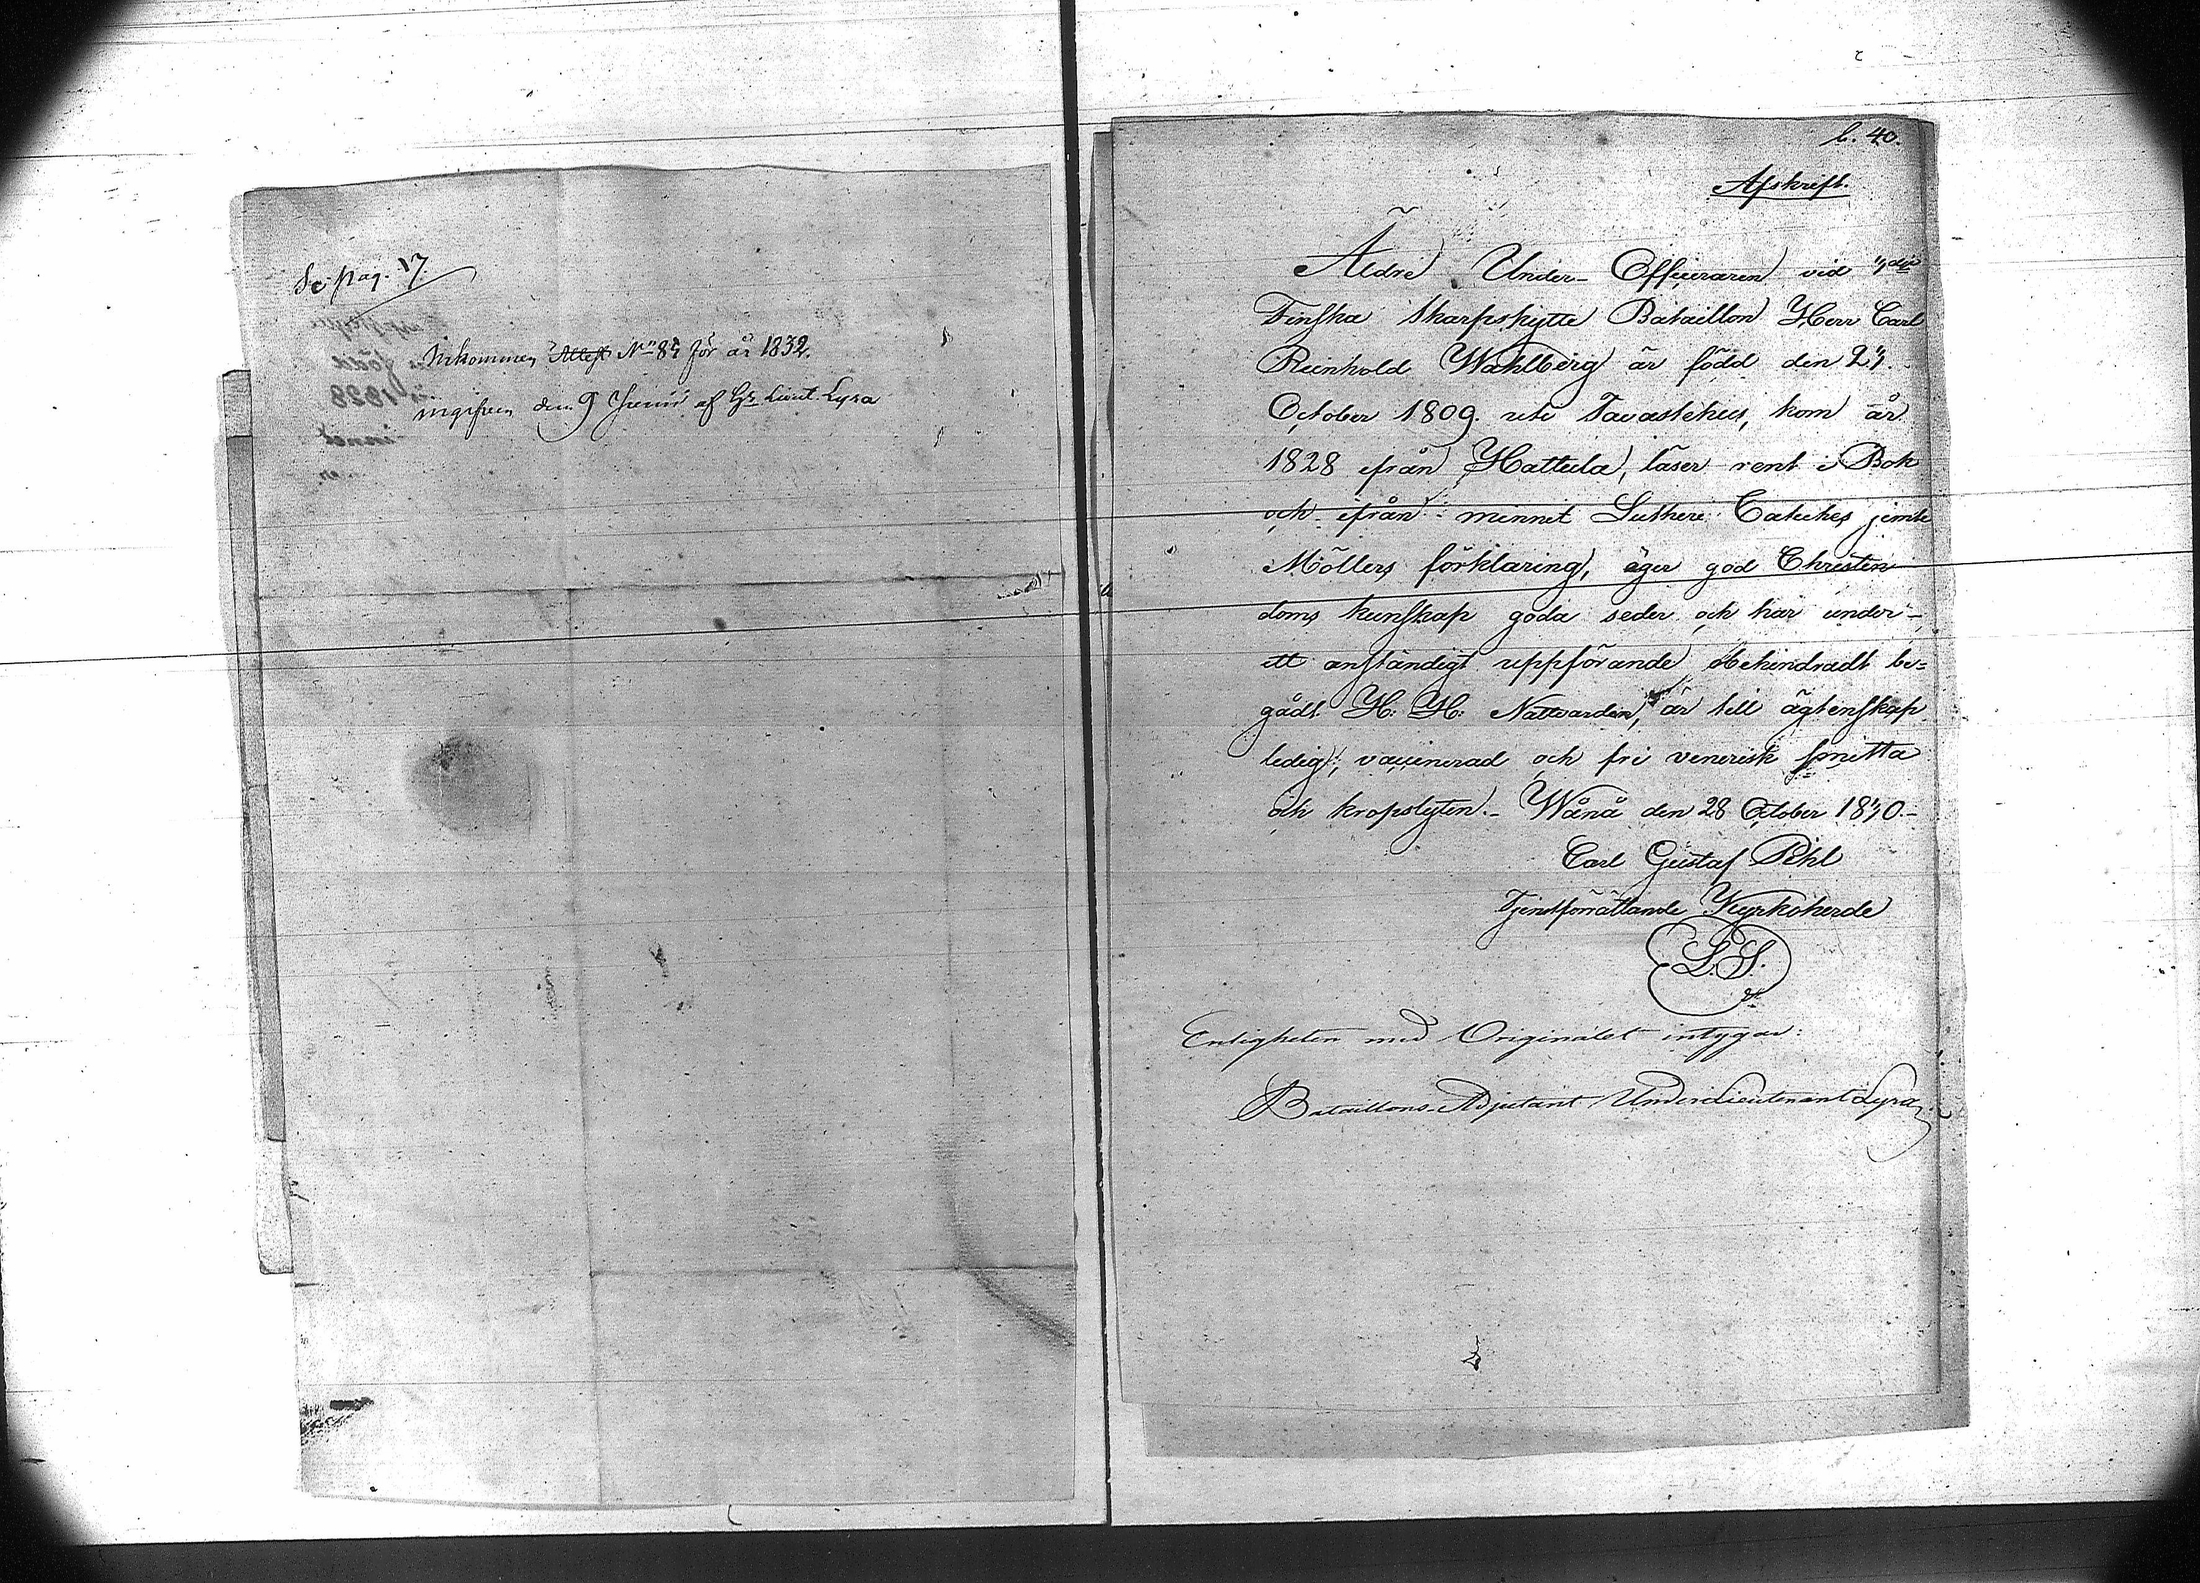 Se pag. 17.
Inkommen Attest No 87 för år 1832.
ingifven den 9 Junii af Hr Lieut. Lyra
b. 40.
Afskrift.
Äldre Under-Officeraren vid
Finska Skarpskytte Bataillon Herr Carl
Reinhold Wahlberg är född den 27.
October 1809 uti Tavastehus, kom år
1828 ifrån Hattula, läser rent i Bok
och ifrån minnet Lutheri Cateches jemte
Möllers förklaring, äger god Christen
doms kunskap goda seder och har under
ett anständigt uppförande obehindradt be=
gådt H: H: Nattvarden, är till ägtenskap
ledig, vaccinerad och fri venerisk smitta
och kropslyten.- Wånå den 28 October 1830.-
Carl Gustaf Pihl
Tjenstförrättande Kyrkoherde
L.S.
Enligheten med Originalet intygar:
Bataillons-Adjutant, Underlieutenant Lyra